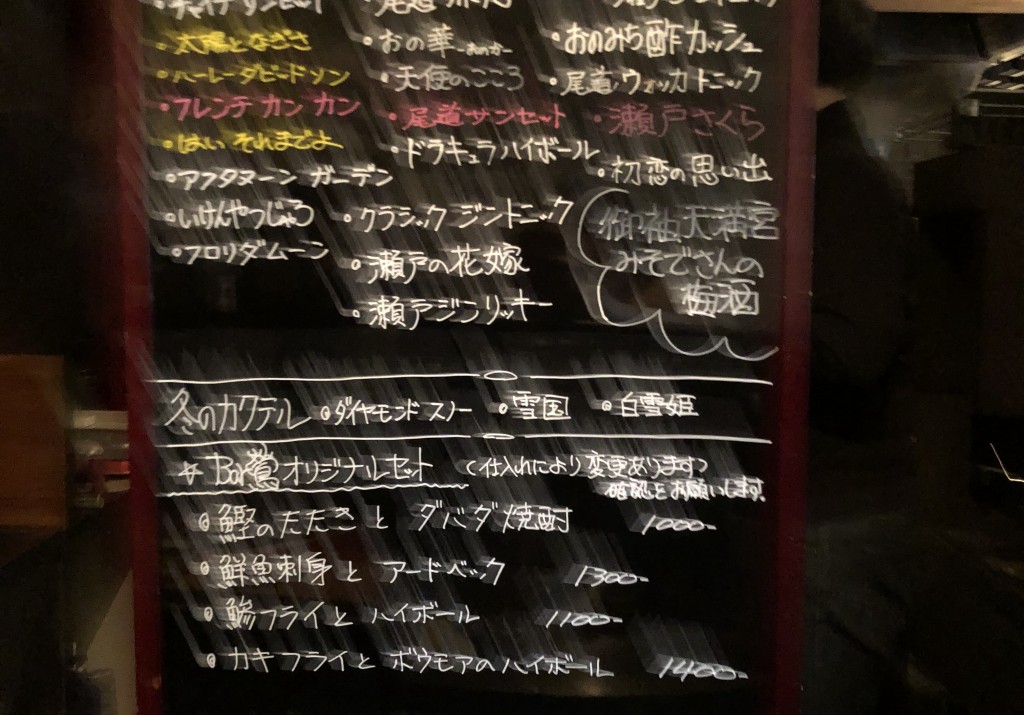 ・太陽となぎさ
・ハーレーダビードソン
・フレンチ カン カン
・はい それまでよ
・アフタヌーン ガーデン
・いけんやつじゃろ
・フロリダムーン
・おの華 -おのか-
・天使のこころ
・尾道サンセット
・ドラキュラハイボール
・クラシック ジントニック
・瀬戸の花嫁
・瀬戸ジンリッキー
・おのみち酢カッシュ
・尾道ウォッカトニック
・瀬戸さくら
・初恋の思い出
御袖天満宮
みそでさんの
梅酒
冬のカクテル ◎ダイヤモンド スノー ◎雪国 ◎白雪姫
☆ Bar鶯オリジナルセット (仕入れにより変更あります)
確認をお願いします。
◎鰹のたたきと ダバダ焼酎 1000-
◎鮮魚刺身と アードベック 1300-
◎鯵フライと ハイボール 1100-
◎カキフライと ボウモアのハイボール 1400-